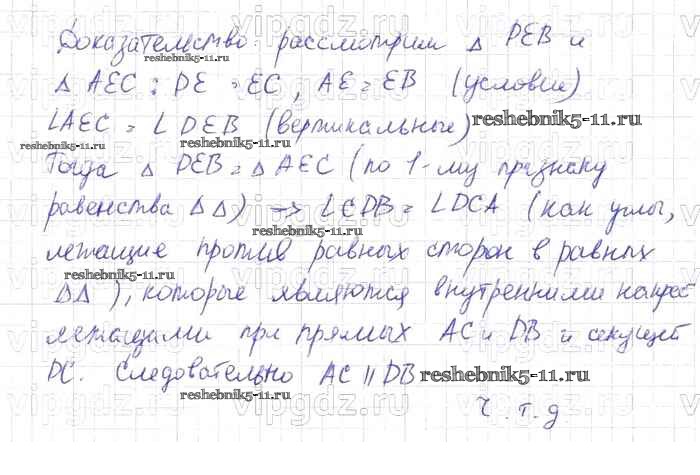 Доказательство: рассмотрим △ DEB и
△ AEC: DE = EC, AE = EB (условие)
∠AEC = ∠DEB (вертикальные)
Тогда △ DEB = △ AEC (по 1-му признаку
равенства △△) → ∠CDB = ∠DCA (как углы,
лежащие против равных сторон в равных
△△), которые являются внутренними накрест
лежащими при прямых AC и DB и секущей
DC. Следовательно AC || DB
ч.т.д
reshebnik5-11.ru
reshebnik5-11.ru
reshebnik5-11.ru
reshebnik5-11.ru
reshebnik5-11.ru
reshebnik5-11.ru
vipgdz.ru